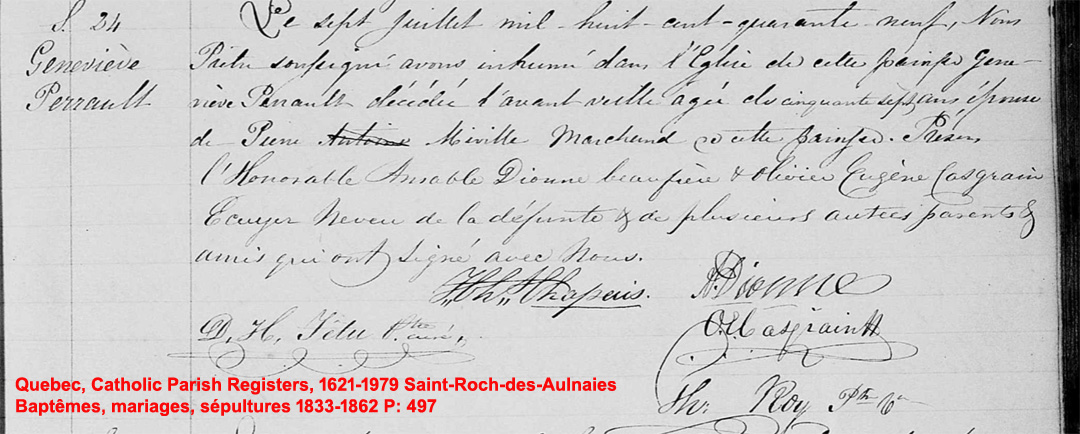 S. 24
Geneviève
Perrault
Le sept Juillet mil-huit-cent-quarante-neuf, Nous
Prêtre soussigné avons inhumé dans l'Eglise de cette paroisse Gene-
viève Perrault décédée l'avant veille agée de cinquante sept ans épouse
de Pierre Antoine Miville Marchand de cette paroisse. Présens
l'Honorable Amable Dionne beaufrère & Olivier Eugène Casgrain
Ecuyer Neveu de la défunte & de plusieurs autres parents &
amis qui ont signé avec Nous.
Chapais. A Dionne
O. E. Casgrain
D. H. Têtu Ptre curé,
Ths Roy Ptre
Quebec, Catholic Parish Registers, 1621-1979 Saint-Roch-des-Aulnaies
Baptêmes, mariages, sépultures 1833-1862 P: 497